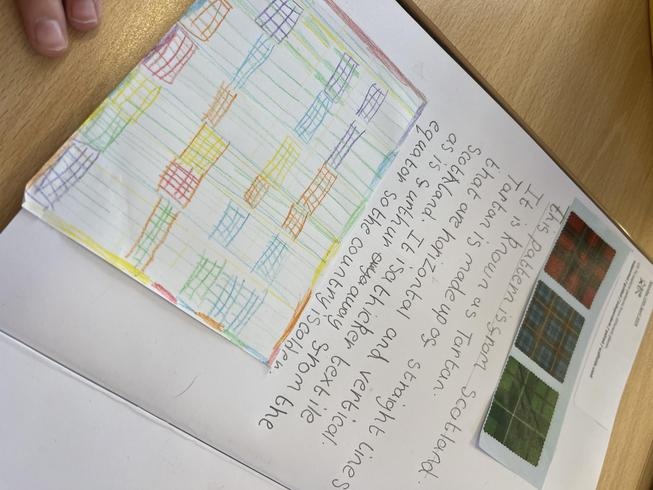 this pattern is from Scotland.
It is known as Tartan.
Tartan is made up of straight lines
that are horizontal and vertical.
Scotland. It is a thicker textile
as is furthur away from the
equator so the country is colder.